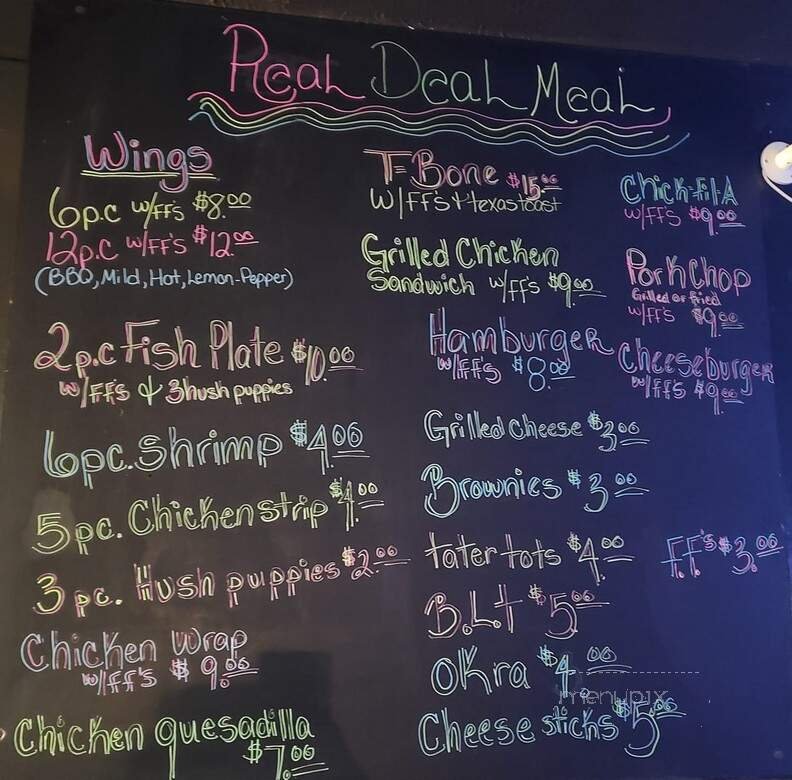 Real Deal Meal
Wings
6p.c w/FF's $8.00
12p.c w/FF's $12.00
(BBQ, Mild, Hot, Lemon-Pepper)
2p.c Fish Plate $10.00
w/FFs & 3hush puppies
6pc. Shrimp $4.00
5pc. Chicken strip $4.00
3 pc. Hush puppies $2.00
Chicken Wrap
w/FF's $ 9.00
Chicken quesadilla
$7.00
T-Bone $15.00
w/FFs + texas toast
Grilled Chicken
Sandwich w/FF's $9.00
Hamburger
w/FF's $8.00
Grilled cheese $3.00
Brownies $3.00
tater tots $4.00
B.L.t $5.00
Okra $4.00
Cheese sticks $5.00
Chick-fil-A
w/FF's $9.00
Pork Chop
Grilled or fried
w/FF's $9.00
Cheeseburger
w/FFs $9.00
F.F's $3.00
menupix